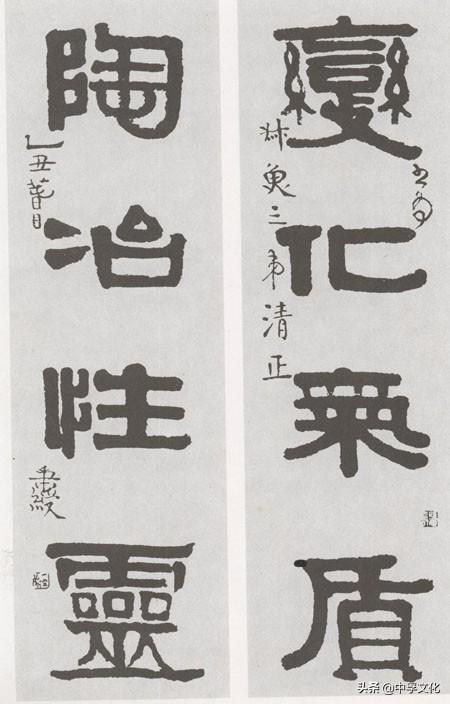 變化氣質
叔魚三弟清正
陶冶性靈
乙丑萅日
头条@中孚文化